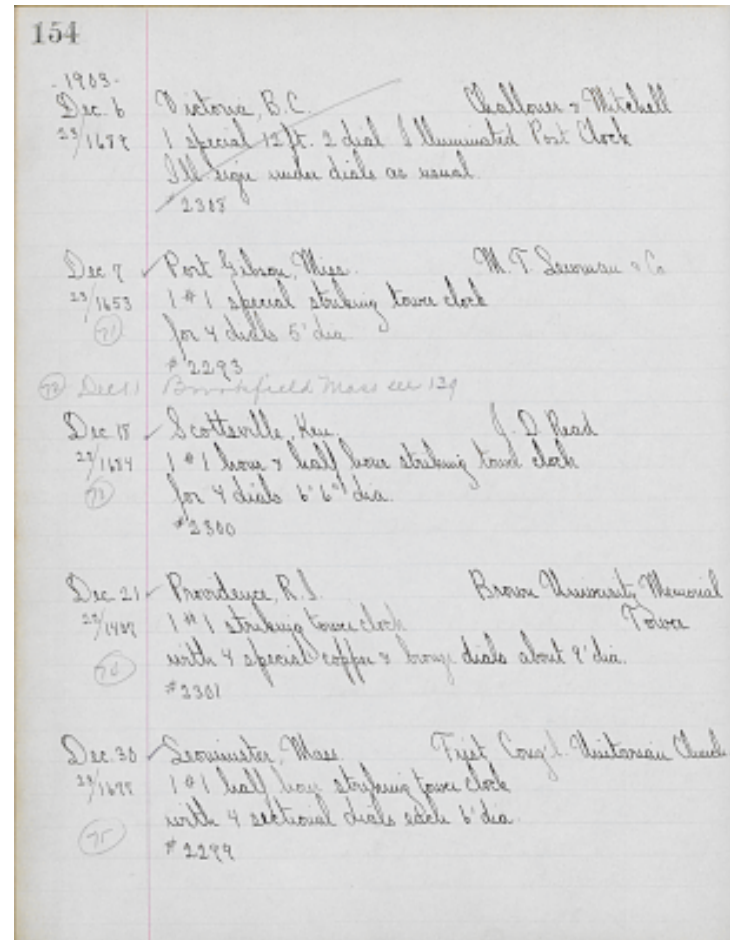 154
- 1903 -
Dec. 6 Victoria, B.C. Challoner & Mitchell
23/1679 1 special 12 ft. 2 dial Illuminated Post Clock
Ill sign under dials as usual.
#2308
Dec 7 ✓ Port Gibson, Miss. M. T. & Co
23/1653 1 #1 special striking tower clock
(71) for 4 dials 5' dia.
#2293
(72) Dec 11 Brookfield Mass see 139
Dec 18 ✓ Scottsville, Ken. J. D Read
1 #1 hour & half hour striking tower clock
(73) for 4 dials 6' 6" dia.
#2300
Dec. 21 ✓ Providence, R.I. Brown University Memorial
Tower
1 #1 striking tower clock
with 4 special copper & bronze dials about 9' dia.
#2301
Dec. 30 ✓ Leominster, Mass. First Cong'l. Unitarian Church
1 #1 half hour striking tower clock
with 4 sectional dials each 6' dia.
(75)
#2299